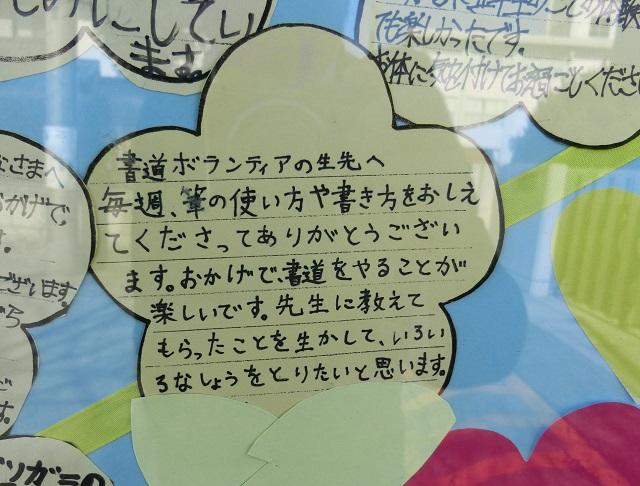 してい
ます
も楽しかったです。
お体に気を付けてお過ごしくださ
さまへ
かげで、
す。
ございます。
書道ボランティアの生先へ
毎週、筆の使い方や書き方をおしえ
てくださってありがとうござい
ます。おかげで、書道をやることが
楽しいです。先生に教えて
もらったことを生かして、いろい
ろなしょうをとりたいと思います。
す。